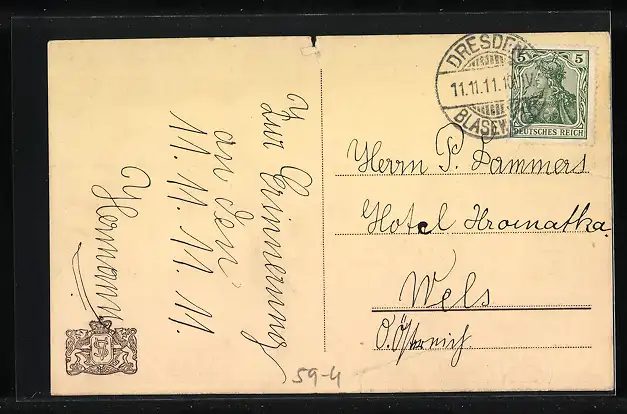 Zur Erinnerung
an den
11. 11. 11. 11.
Hermann
59-4
DRESDEN
11.11.11.10
BLASEW
5 5
DEUTSCHES REICH
Herrn P. Lammers
Hotel Kromatka
Wels
O. Österreich.